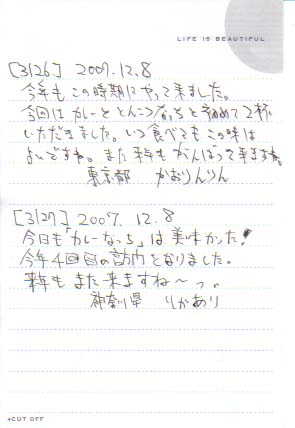 LIFE IS BEAUTIFUL
[3126] 2007.12.8
今年もこの時期にやって来ました。
今回はカレーととんこつなっちと初めて2杯
いただきました。いつ食べてもこの味は
よいですね。また来年もがんばって来ますね。
東京都 かおりんりん
[3127] 2007.12.8
今日も「カレーなっち」は美味かった!
今年4回目の訪問となりました。
来年もまた来ますね〜っ。
神奈川県 りかあり
CUT OFF